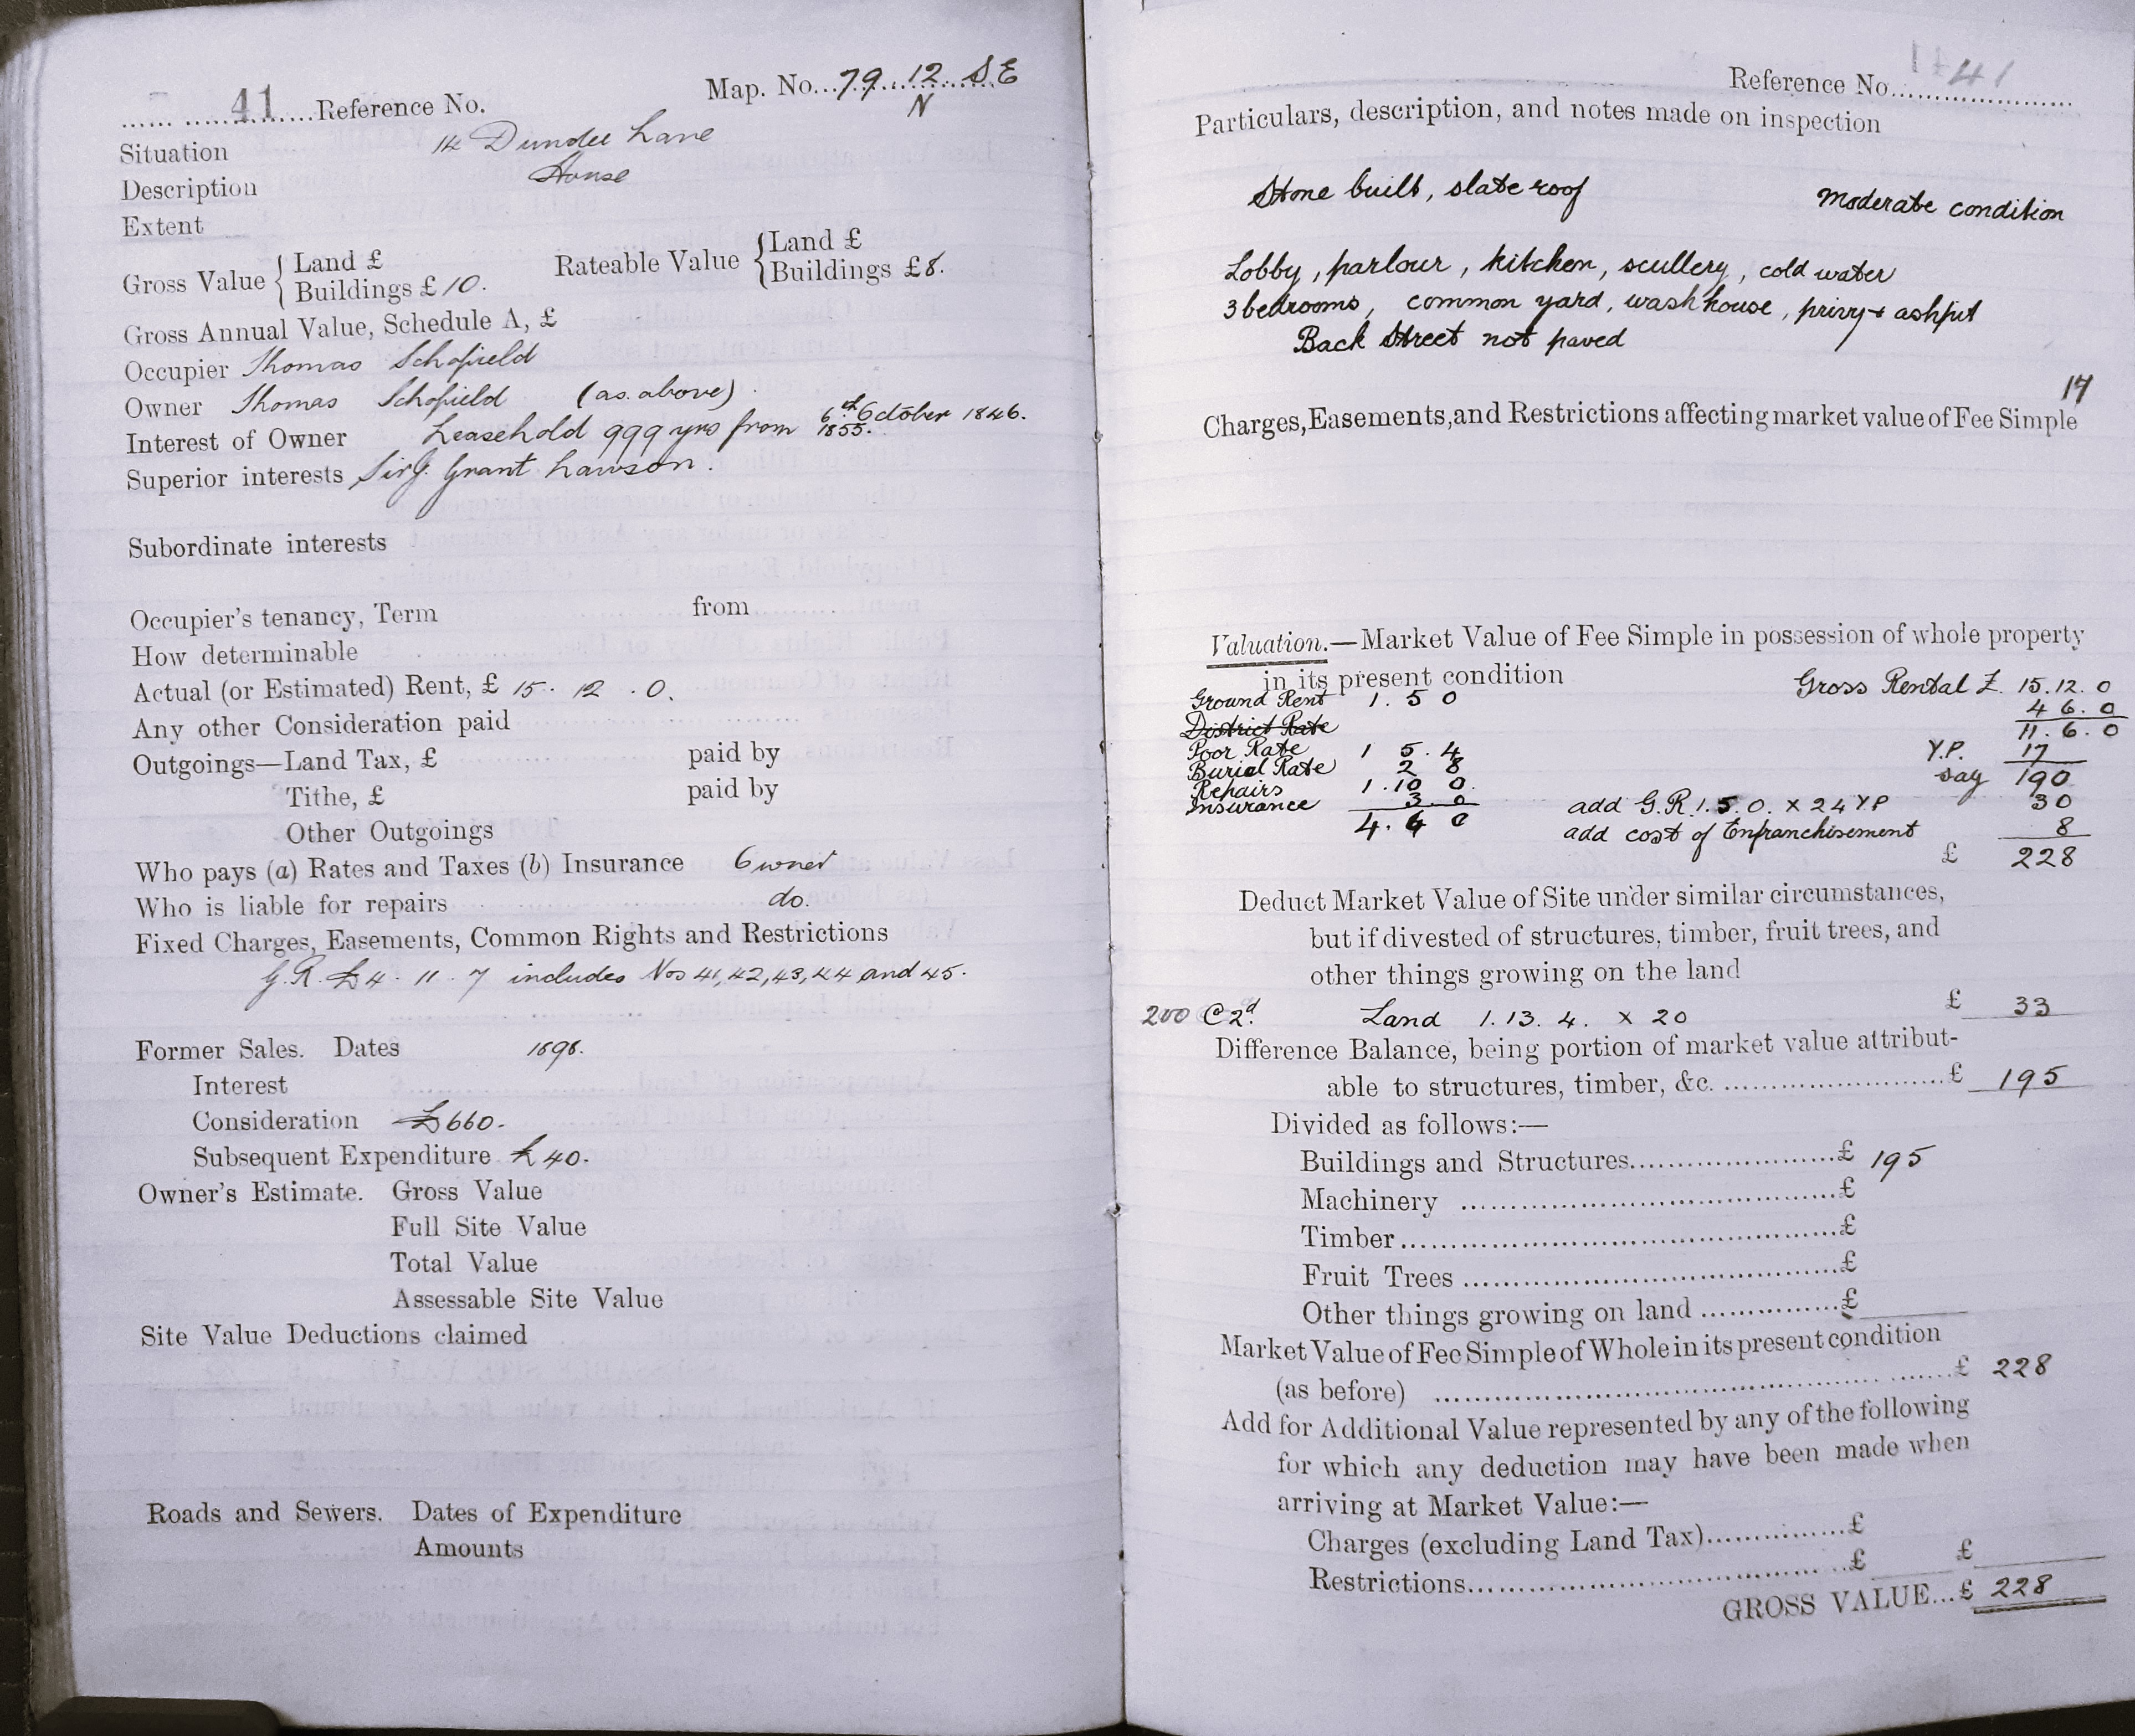 41 Reference No. Map. No. 79 12 S E
N
Situation 14 Dundee Lane
Description House
Extent
Gross Value { Land £
Buildings £ 10.
Rateable Value { Land £
Buildings £ 8.
Gross Annual Value, Schedule A, £
Occupier Thomas Schofield
Owner Thomas Schofield (as above).
Interest of Owner Leasehold 999 yrs from 6th October 1846.
1855.
Superior interests Sir J. Grant Lawson.
Subordinate interests
Occupier's tenancy, Term from
How determinable
Actual (or Estimated) Rent, £ 15. 12. 0.
Any other Consideration paid
Outgoings—Land Tax, £ paid by
Tithe, £ paid by
Other Outgoings
Who pays (a) Rates and Taxes (b) Insurance Owner
Who is liable for repairs do.
Fixed Charges, Easements, Common Rights and Restrictions
G.R. £4. 11. 7 includes Nos 41, 42, 43, 44 and 45.
Former Sales. Dates 1898.
Interest
Consideration £660.
Subsequent Expenditure £40.
Owner's Estimate. Gross Value
Full Site Value
Total Value
Assessable Site Value
Site Value Deductions claimed
Roads and Sewers. Dates of Expenditure
Amounts
Reference No. 41
Particulars, description, and notes made on inspection
Stone built, slate roof moderate condition
Lobby, parlour, kitchen, scullery, cold water
3 bedrooms, common yard, wash house, privy + ashpit
Back Street not paved
14
Charges, Easements, and Restrictions affecting market value of Fee Simple
Valuation.—Market Value of Fee Simple in possession of whole property
in its present condition
Gross Rental £. 15. 12. 0
Ground Rent 1. 5 0
4 6. 0
District Rate
11. 6. 0
Poor Rate 1 5. 4
Y.P. 17
Burial Rate 2 8
say 190
Repairs 1. 10 0.
Insurance 3. 0
add G.R. 1. 5. 0. × 24 YP 30
4. 6 0
add cost of Enfranchisement 8
£ 228
Deduct Market Value of Site under similar circumstances,
but if divested of structures, timber, fruit trees, and
other things growing on the land
200 @ 2d. Land 1. 13. 4. × 20 £ 33
Difference Balance, being portion of market value attribut-
able to structures, timber, &c. £ 195
Divided as follows:—
Buildings and Structures £ 195
Machinery £
Timber £
Fruit Trees £
Other things growing on land £
Market Value of Fee Simple of Whole in its present condition
(as before) £ 228
Add for Additional Value represented by any of the following
for which any deduction may have been made when
arriving at Market Value:—
Charges (excluding Land Tax) £
Restrictions £ £
GROSS VALUE...£ 228